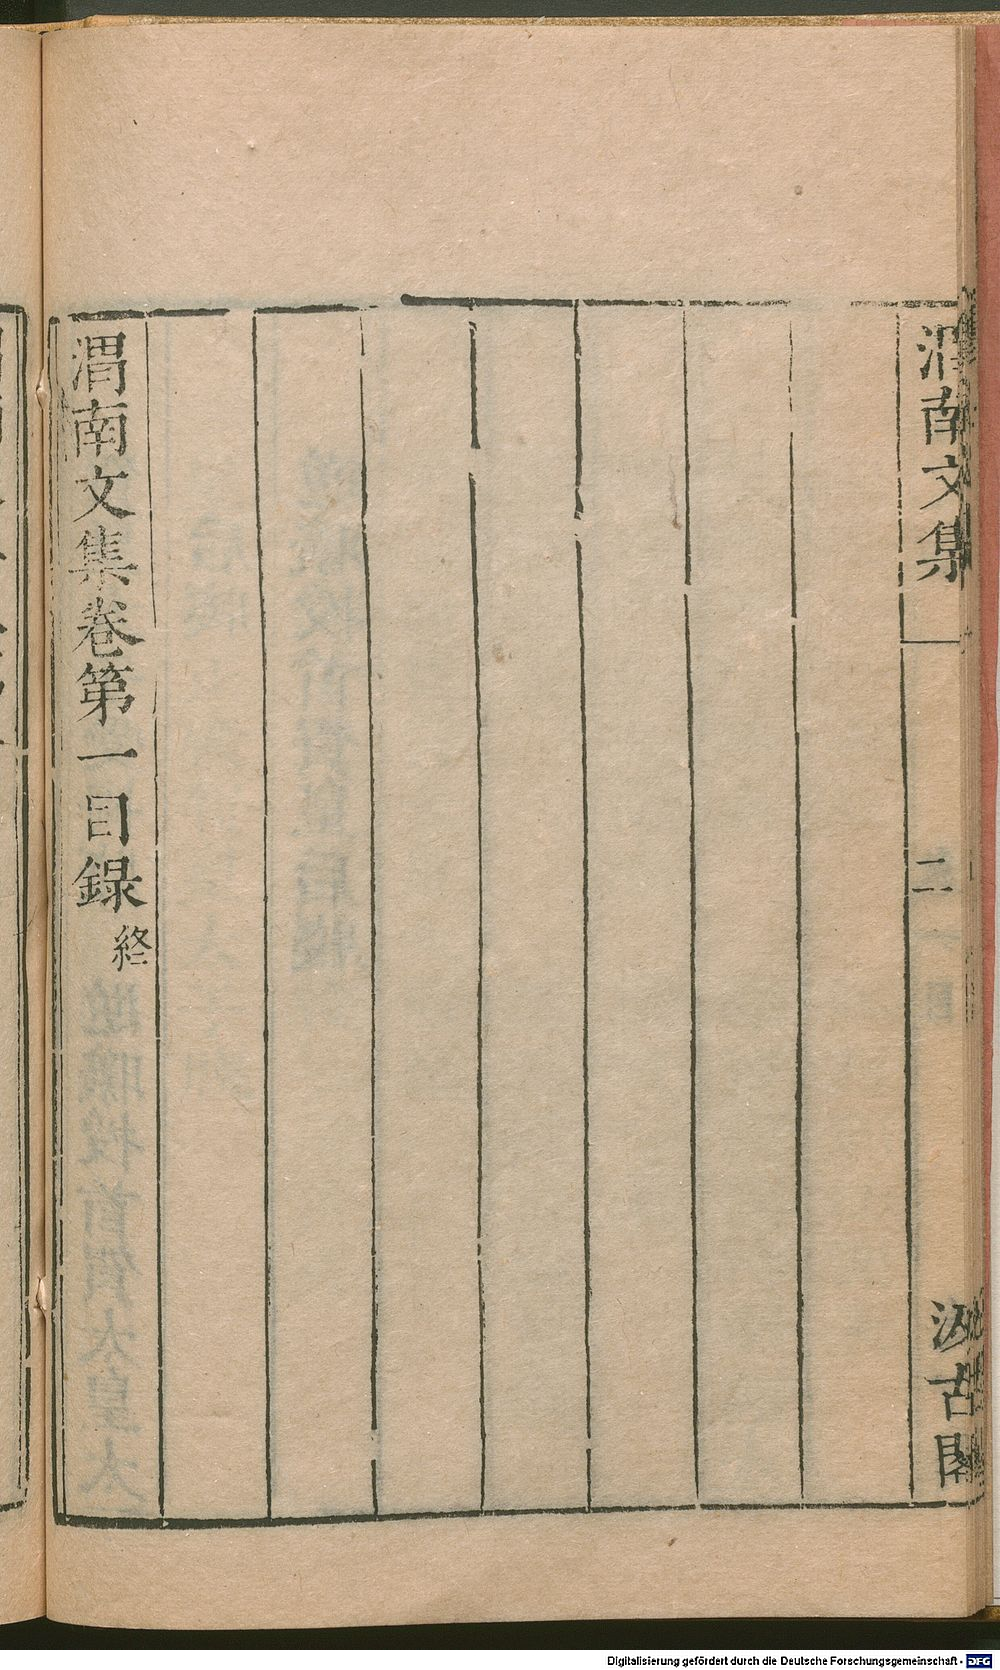 渭南文集
二
汲古閣
渭南文集卷第一目録終
Digitalisierung gefördert durch die Deutsche Forschungsgemeinschaft - DFG